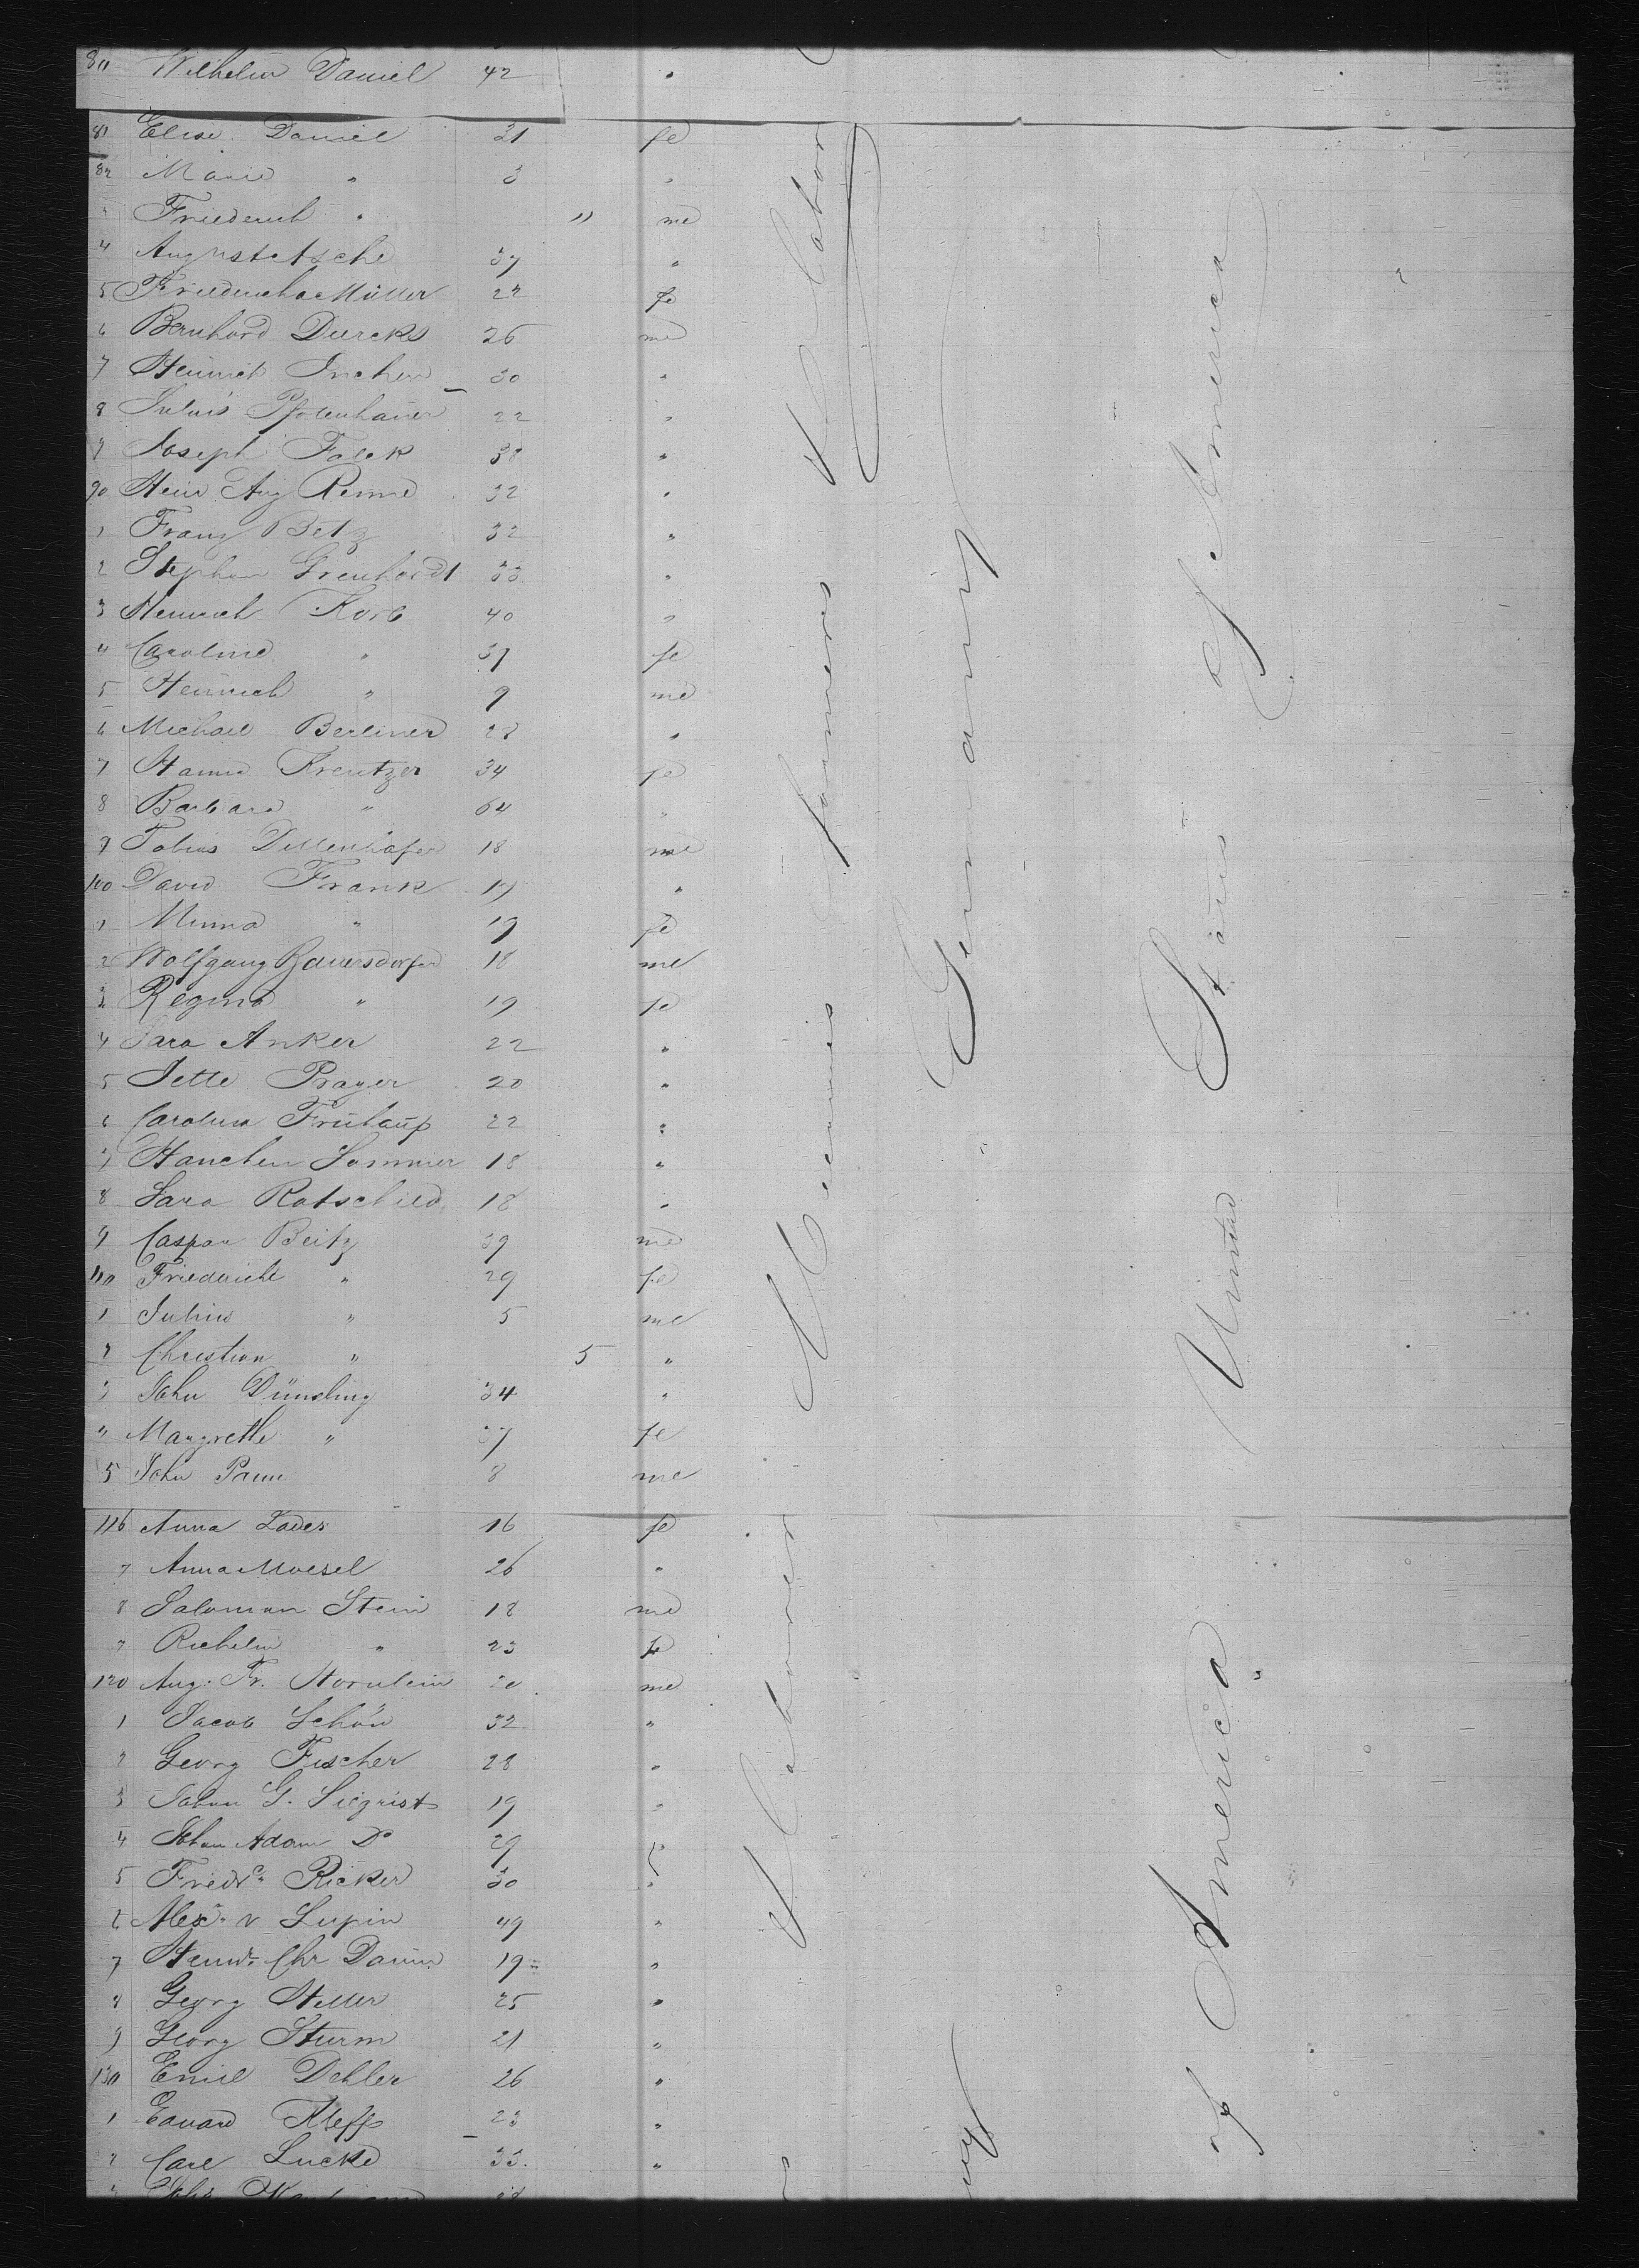 80 Wilhelm Daniel 42 "
81 Elise Daniel 31 fe
82 Marie " 3 "
Friederich " 11 me
4 August etsche 37 "
5 Friedericha Müller 22 fe
6 Bernhard Duercks 26 me
7 Heinrich 30 "
8 Julius Pfotenhauer 22 "
9 Joseph Falck 38 "
90 Heinr Aug Renne 32 "
1 Franz Betz 32 "
2 Stephan Grenhardt 33 "
3 Heinrich Korb 40 "
4 Caroline " 37 fe
5 Heinrich " 9 me
6 Michael Berliner 28 "
7 Hanna Kreutzer 34 fe
8 Barbara " 64 "
9 Tobias Dillenhöfer 18 me
100 David Frank 17 "
1 Minna " 19 fe
2 Wolfgang Bauersdorfer 18 me
3 Regina " 19 fe
4 Sara Anker 22 "
5 Jette Prager 20 "
6 Carolina Frühauf 22 "
7 Hanchen Sommer 18 "
8 Sara Rotschild 18 "
9 Caspar Beitz 39 me
110 Friedericke " 29 fe
1 Julius " 5 me
2 Christian " 5 "
3 John Dünsling 34 "
4 Margrethe " 37 fe
5 John Paun 8 me
116 Anna Lades 16 fe
7 Anna Moesel 26 "
8 Saloman Stein 18 me
9 Richelin " 23 fe
120 Aug. Fr. Hornlein 20 me
1 Jacob Schön 32 "
2 Georg Fischer 28 "
3 Johan G. Siegrist 19 "
4 Johan Adam Do 29 "
5 Friedr. Ricker 30 "
6 Alex. v Lupin 49 "
7 Heinr. Chr Daum 19 "
8 Georg Heller 25 "
9 Georg Sturm 21 "
130 Emil Dehler 26 "
1 Eduard Kleff 23 "
2 Carl Lucke 33. "
Farmers & Labor
Germany
United States of America
& Laborer
of America